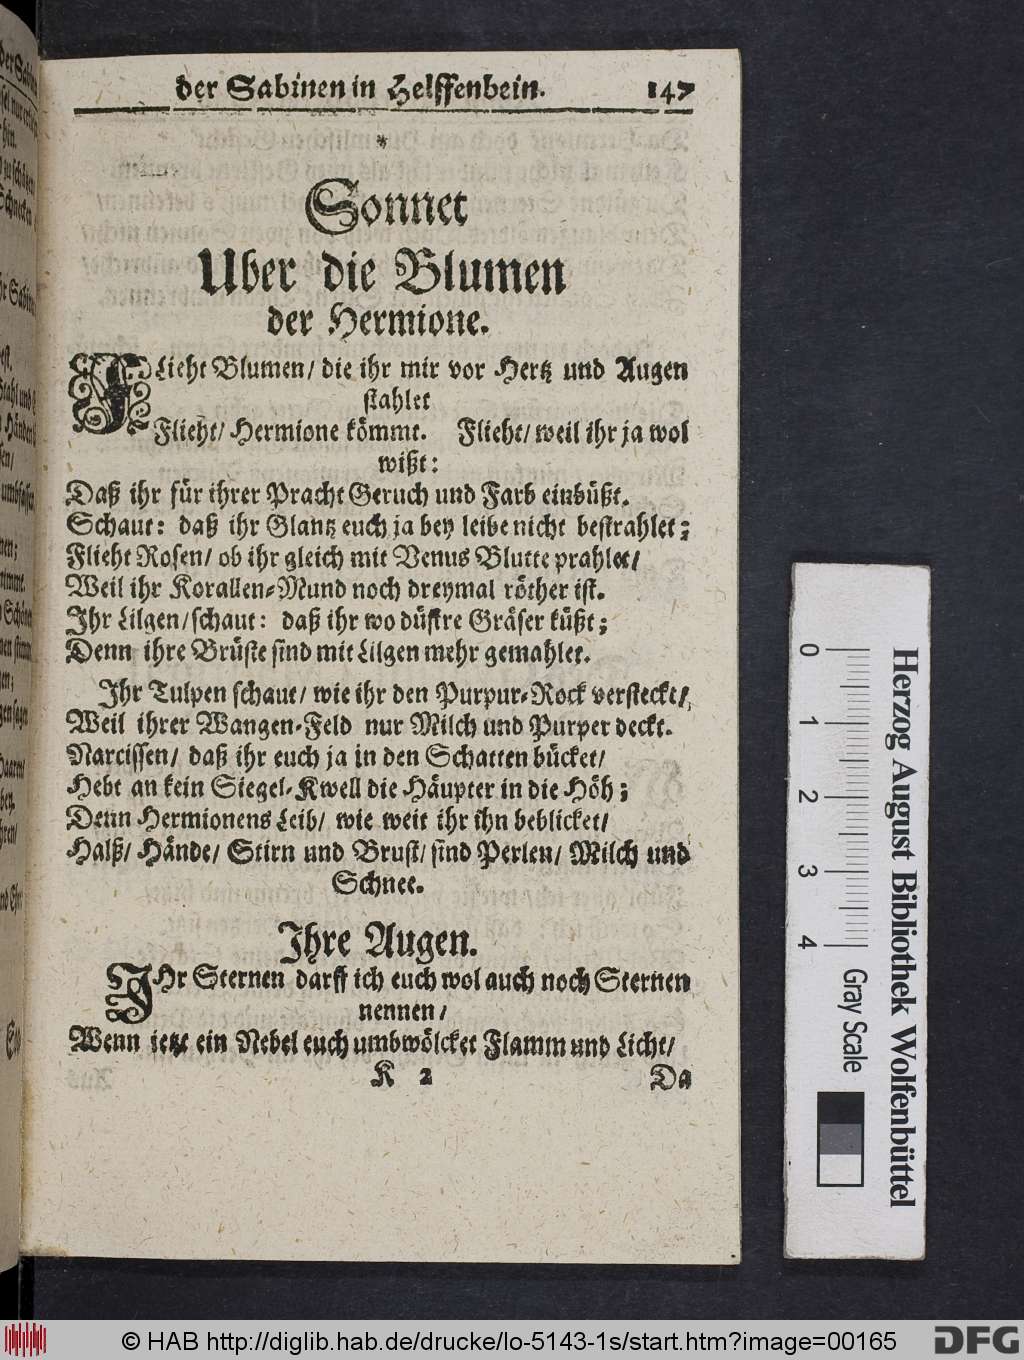 der Sabinen in Helffenbein. 147
*
Sonnet
Uber die Blumen
der Hermione.
FLieht Blumen/ die ihr mir vor Hertz und Augen
stahlet
Flieht/ Hermione kömmt. Flieht/ weil ihr ja wol
wißt:
Daß ihr für ihrer Pracht Geruch und Farb einbüßt.
Schaut: daß ihr Glantz euch ja bey leibe nicht bestrahlet;
Flieht Rosen/ ob ihr gleich mit Venus Blutte prahlet/
Weil ihr Korallen-Mund noch dreymal röther ist.
Ihr Lilgen/ schaut: daß ihr wo düstre Gräser küßt;
Denn ihre Brüste sind mit Lilgen mehr gemahlet.
Ihr Tulpen schaut/ wie ihr den Purpur-Rock versteckt/
Weil ihrer Wangen-Feld nur Milch und Purper deckt.
Narcissen/ daß ihr euch ja in den Schatten bücket/
Hebt an kein Siegel-Kwell die Häupter in die Höh;
Denn Hermionens Leib/ wie weit ihr ihn beblicket/
Halß/ Hände/ Stirn und Brust/ sind Perlen/ Milch und
Schnee.
Ihre Augen.
IHr Sternen darff ich euch wol auch noch Sternen
nennen/
Wenn jetzt ein Nebel euch umbwölcket Flamm und Licht/
K 2 Da
Herzog August Bibliothek Wolfenbüttel
0 1 2 3 4 Gray Scale
© HAB http://diglib.hab.de/drucke/lo-5143-1s/start.htm?image=00165
DFG